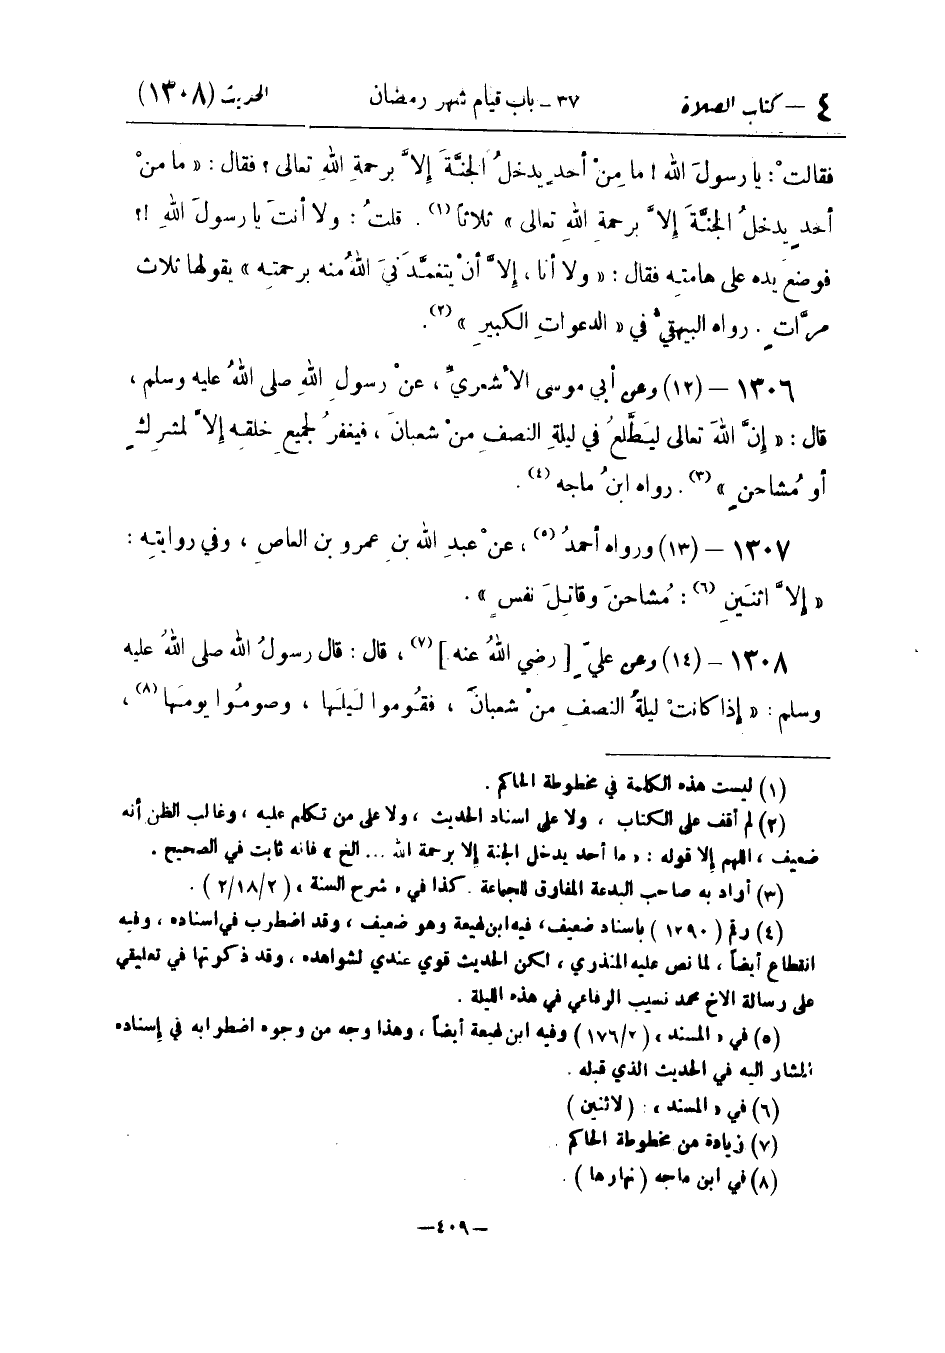 ٤ – كتاب الصلاة ٣٧ - باب قيام شهر رمضان الحديث (١٣٠٨)
فقالتْ: يا رسولَ الله! ما مِنْ أحدٍ يدخلُ الجنَّةَ إلاَّ برحمةِ اللهِ تعالى؟ فقال: «ما منْ
أحدٍ يدخلُ الجنَّةَ إلاَّ برحمةِ اللهِ تعالى» ثلاثاً (١). قلتُ: ولا أنتَ يا رسولَ اللهِ !؟
فوضعَ يده على هامتِه فقال: «ولا أنا، إلاَّ أنْ يتغمَّدَنيَ اللهُ منه برحمتِه» يقولها ثلاث
مرَّاتٍ. رواه البيهقيُّ في «الدعواتِ الكبيرِ» (٢).
١٣٠٦ – (١٢) وعن أبي موسى الأشعريِّ، عنْ رسولِ اللهِ صلى اللهُ عليه وسلم،
قال: «إنَّ اللهَ تعالى ليَطَّلعُ في ليلةِ النصفِ منْ شعبانَ، فيغفرُ لجميعِ خلقِه إلاَّ لمشركٍ
أو مُشاحنٍ» (٣). رواه ابنُ ماجه (٤).
١٣٠٧ – (١٣) ورواه أحمدُ (٥)، عنْ عبدِ الله بنِ عمرو بنِ العاصِ، وفي روايتِه:
«إلاَّ اثنَينِ (٦): مُشاحنَ وقاتلَ نفسٍ».
١٣٠٨ – (١٤) وعن عليٍّ [رضي اللهُ عنه] (٧)، قال: قال رسولُ الله صلى اللهُ عليه
وسلم: «إذا كانتْ ليلةُ النصفِ منْ شعبانَ، فقُوموا لَيلَها، وصومُوا يومَها (٨)،
(١) ليست هذه الكلمة في مخطوطة الحاكم.
(٢) لم أقف على الكتاب، ولا على اسناد الحديث، ولا على من تكلم عليه، وغالب الظن أنه
ضعيف، اللهم إلا قوله: «ما أحد يدخل الجنة إلا برحمة الله ... الخ» فانه ثابت في الصحيح.
(٣) أراد به صاحب البدعة المفارق للجماعة. كذا في «شرح السنة» (٢/١٨/٢).
(٤) رقم (١٣٩٠) بإسناد ضعيف، فيه ابن لهيعة وهو ضعيف، وقد اضطرب في اسناده، وفيه
انقطاع أيضاً، لما نص عليه المنذري، لكن الحديث قوي عندي لشواهده، وقد ذكرتها في تعليقي
على رسالة الاخ محمد نسيب الرفاعي في هذه الليلة.
(٥) في «المسند» (١٧٦/٢) وفيه ابن لهيعة أيضاً، وهذا وجه من وجوه اضطرابه في إسناده
المشار اليه في الحديث الذي قبله.
(٦) في «المسند»: (لاثنين)
(٧) زيادة من مخطوطة الحاكم.
(٨) في ابن ماجه (نهارها).
–٤٠٩–